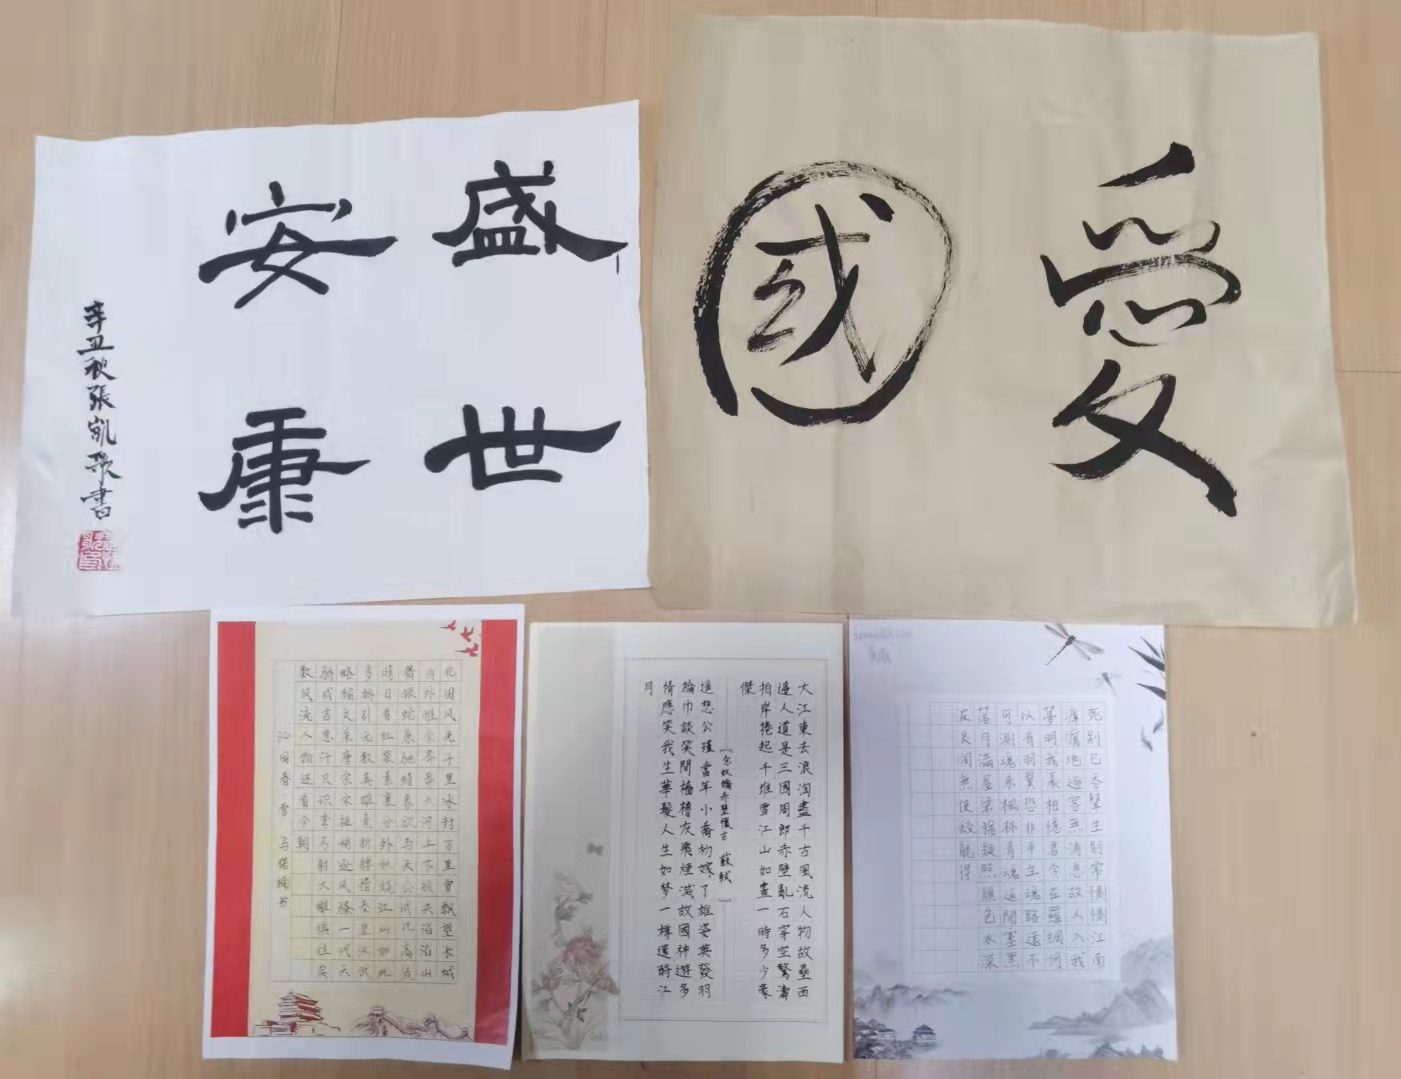 盛世
安康
辛丑秋張凱書
愛
國
北国风光千里冰封万里雪飘望长城
内外惟余莽莽大河上下顿失滔滔山
舞银蛇原驰蜡象欲与天公试比高须
晴日看红装素裹分外妖娆江山如此
多娇引无数英雄竞折腰惜秦皇汉武
略输文采唐宗宋祖稍逊风骚一代天
骄成吉思汗只识弯弓射大雕俱往矣
数风流人物还看今朝
沁园春 雪 马保楠书
大江東去浪淘盡千古風流人物故壘西
邊人道是三國周郎赤壁亂石穿空驚濤
拍岸捲起千堆雪江山如畫一時多少豪
傑
『念奴嬌赤壁懷古 蘇軾』
遥想公瑾當年小喬初嫁了雄姿英發羽
綸巾談笑間檣櫓灰飛煙滅故國神遊多
情應笑我生華髮人生如梦一樽還酹江
月
死別已吞聲生別常惻惻江南
瘴癘地逐客無消息故人入我
夢明我長相憶君今在羅網何
以有羽翼恐非平生魂路遠不
可測魂來楓林青魂返關塞黑
落月滿屋梁猶疑照顏色水深
波浪闊無使蛟龍得